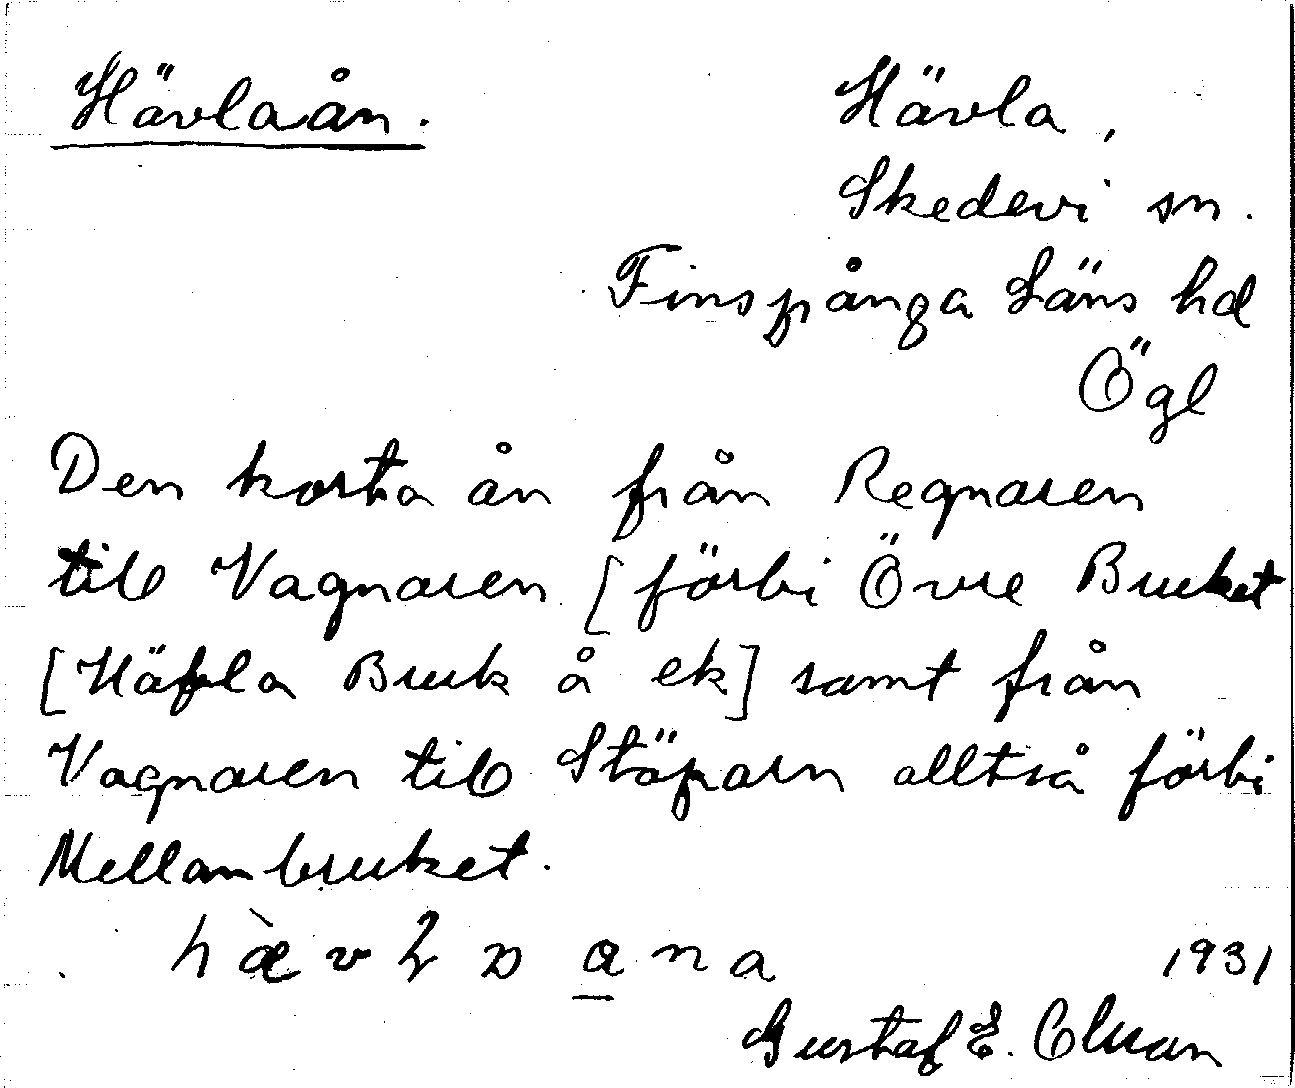 Hävlaån.
Hävla,
Skedevi sn.
Finspånga Läns hd
Ögl
Den korta ån från Regnaren
till Vagnaren [förbi Övre Bruket
[Häfla Bruk å ek] samt från
Vagnaren till Stöparn alltså förbi
Mellanbruket.
1931
Gustaf E.